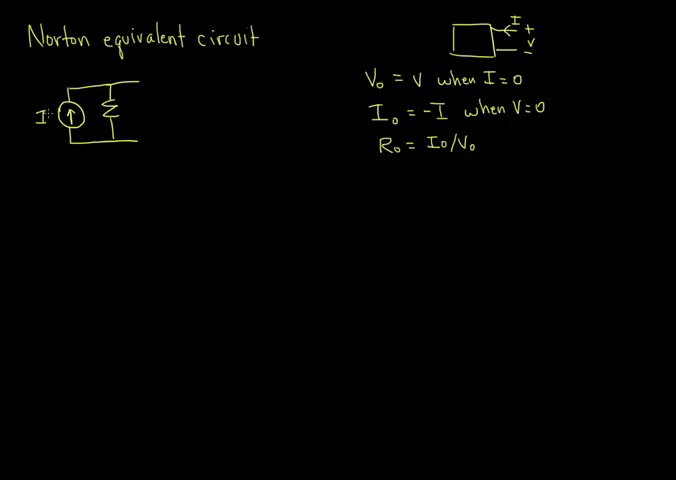 Norton equivalent circuit
I
+
V
-
V₀ = V when I = 0
I₀ = -I when V = 0
R₀ = I₀/V₀
I